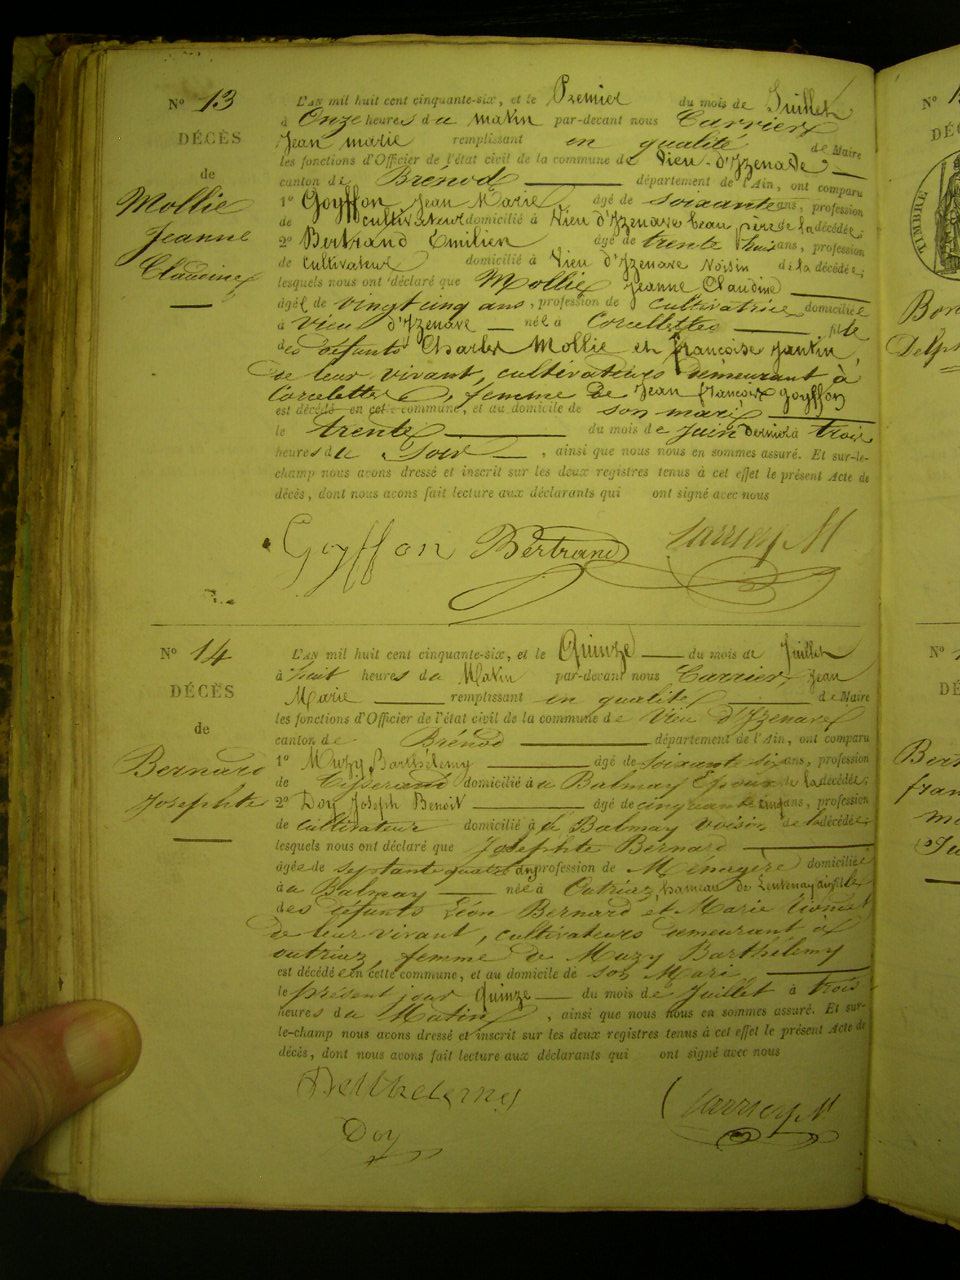 N° 13
DÉCÈS
de
Mollie
Jeanne
Claudine
L'AN mil huit cent cinquante-six, et le Premier du mois de Juillet
à Onze heures du matin par-devant nous Carrier
Jean marie remplissant en qualité de Maire
les fonctions d'Officier de l'état civil de la commune de Vieu-d'Izenave
canton de Brénod département de l'Ain, ont comparu
1° Goyffon Jean Marie âgé de soixante ans, profession
de cultivateur domicilié à Vieu d'Izenave beau père de la décédée;
2° Bertrand Émilien âgé de trente trois ans, profession
de Cultivateur domicilié à Vieu d'Izenave Voisin de la décédée;
lesquels nous ont déclaré que Mollie Jeanne Claudine
âgée de vingt cinq ans, profession de cultivatrice domiciliée
à Vieu d'Izenave née à Corcelettes fille
des défunts Charles Mollie et françoise Jantin,
de leur vivant, cultivateurs demeurant à
Corcelettes, femme de Jean françois Goyffon
est décédé en cette commune, et au domicile de son mari
le trente du mois de Juin dernier à trois
heures du Soir, ainsi que nous nous en sommes assuré. Et sur-le-
champ nous avons dressé et inscrit sur les deux registres tenus à cet effet le présent Acte de
décès, dont nous avons fait lecture aux déclarants qui ont signé avec nous
Goyffon Bertrand Carrier M
N° 14
DÉCÈS
de
Bernard
Josephte
L'AN mil huit cent cinquante-six, et le Quinze du mois de Juillet
à huit heures du Matin par-devant nous Carrier Jean
Marie remplissant en qualité de Maire
les fonctions d'Officier de l'état civil de la commune de Vieu d'Izenave
canton de Brénod département de l'Ain, ont comparu
1° Muzy Barthélemy âgé de soixante six ans, profession
de Tisserand domicilié à la Balmay Epoux de la décédée;
2° Doy Joseph Benoit âgé de cinquante cinq ans, profession
de cultivateur domicilié à la Balmay voisin de la décédée;
lesquels nous ont déclaré que Josephte Bernard
âgée de septante quatre ans profession de Ménagère domiciliée
à la Balmay née à Outriaz, hameau de Lentenay, fille
des défunts Léon Bernard et Marie
de leur vivant, cultivateurs demeurant à
outriaz, femme de Muzy Barthélemy
est décédée en cette commune, et au domicile de son Mari,
le présent jour Quinze du mois de Juillet à trois
heures du Matin, ainsi que nous nous en sommes assuré. Et sur-
le-champ nous avons dressé et inscrit sur les deux registres tenus à cet effet le présent Acte de
décès, dont nous avons fait lecture aux déclarants qui ont signé avec nous
Carrier M
Doy
N°
TIMBRE